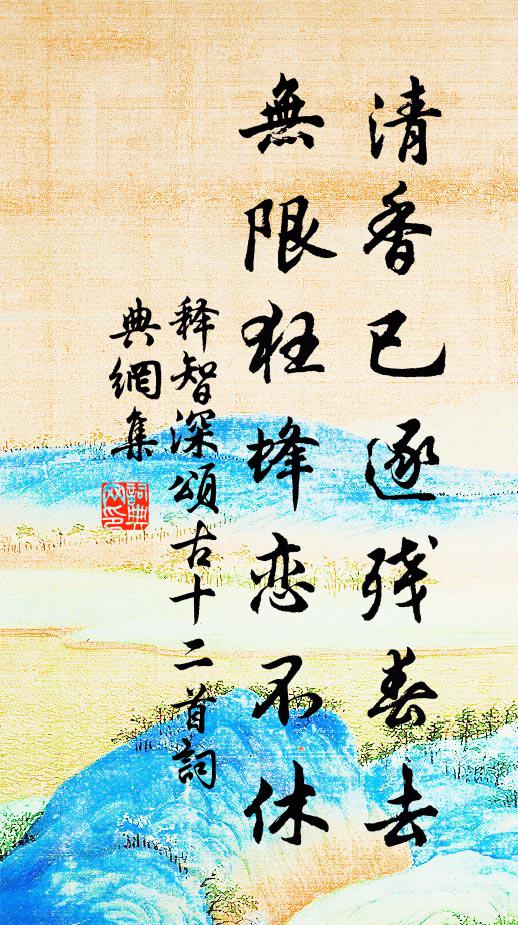 清香已逐残春去
無限狂蜂恋不休
释智深頌古十二首詞
典網集
詞典
网印